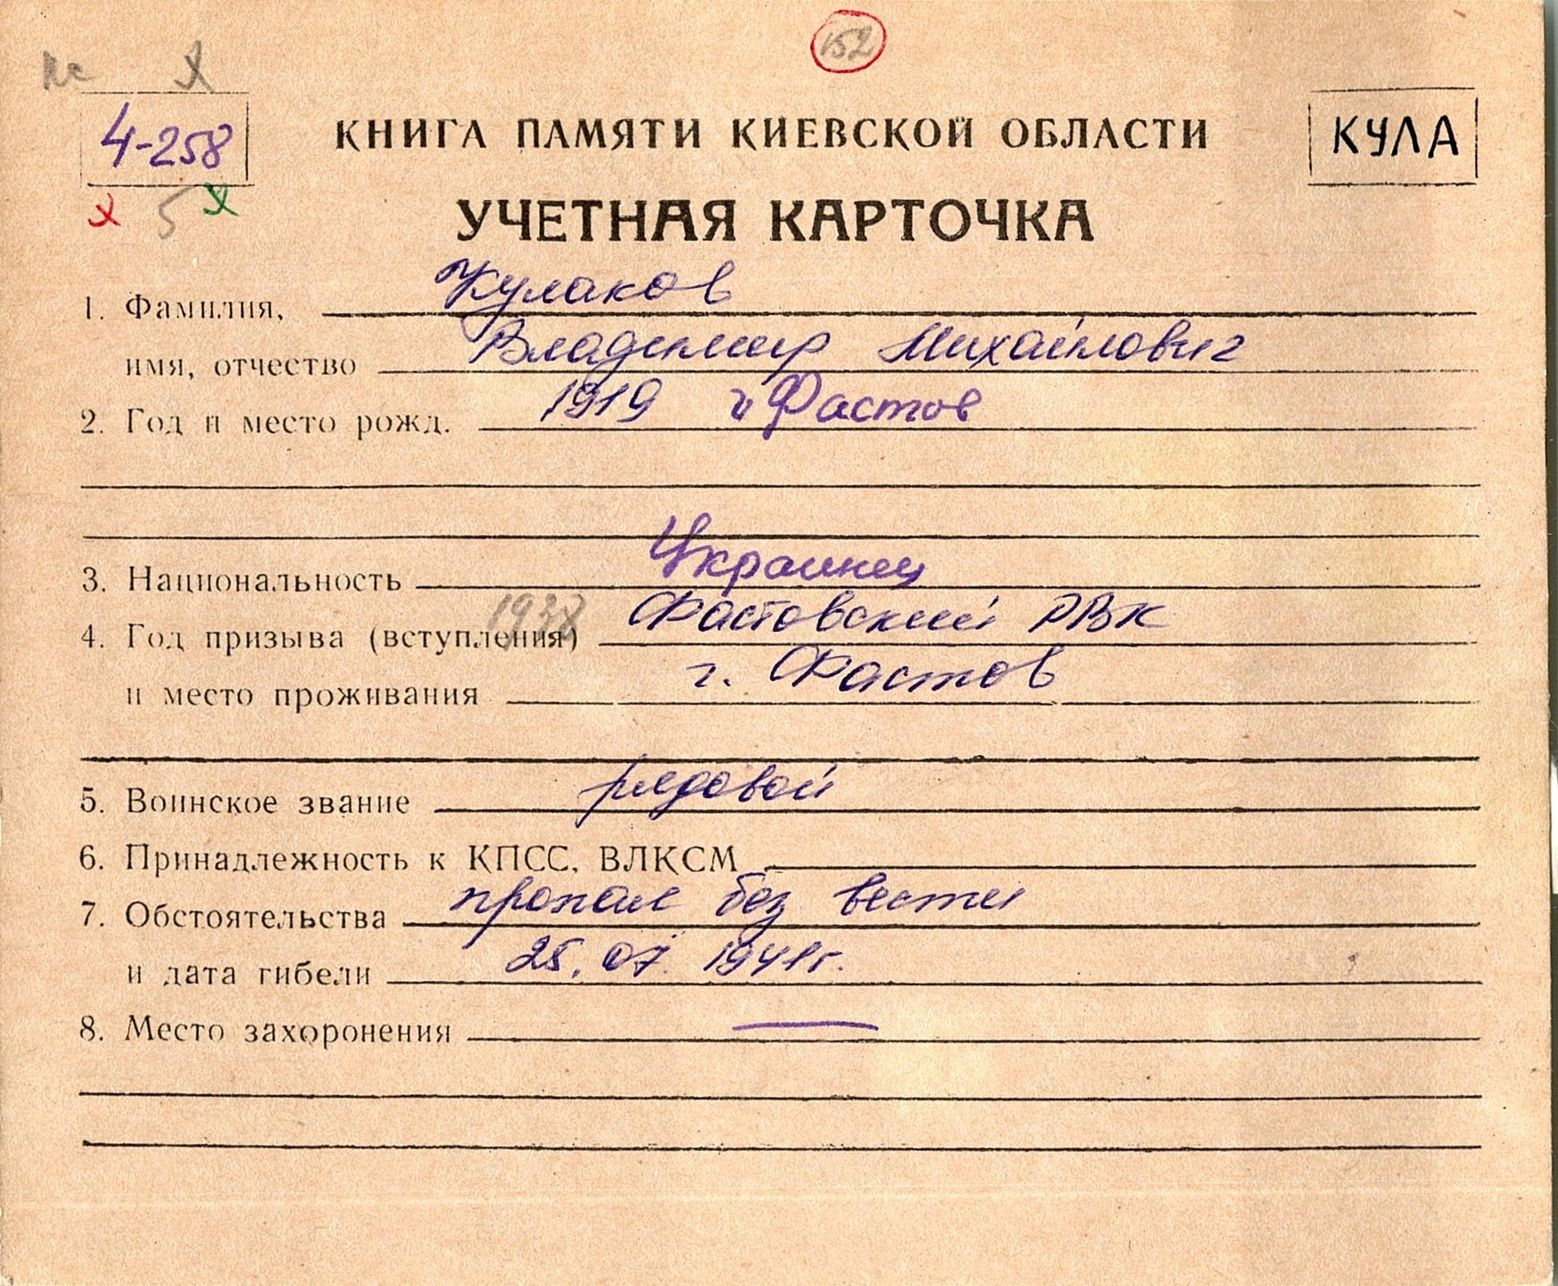 152
4-258
КНИГА ПАМЯТИ КИЕВСКОЙ ОБЛАСТИ
КУЛА
х 5 х
УЧЕТНАЯ КАРТОЧКА
1. Фамилия, Кулаков
имя, отчество Владимир Михайлович
2. Год и место рожд. 1919 г Фастов
3. Национальность Украинец
4. Год призыва (вступления) 1938 Фастовский РВК
и место проживания г. Фастов
5. Воинское звание рядовой
6. Принадлежность к КПСС, ВЛКСМ
7. Обстоятельства пропал без вести
и дата гибели 25.07.1941г.
8. Место захоронения —